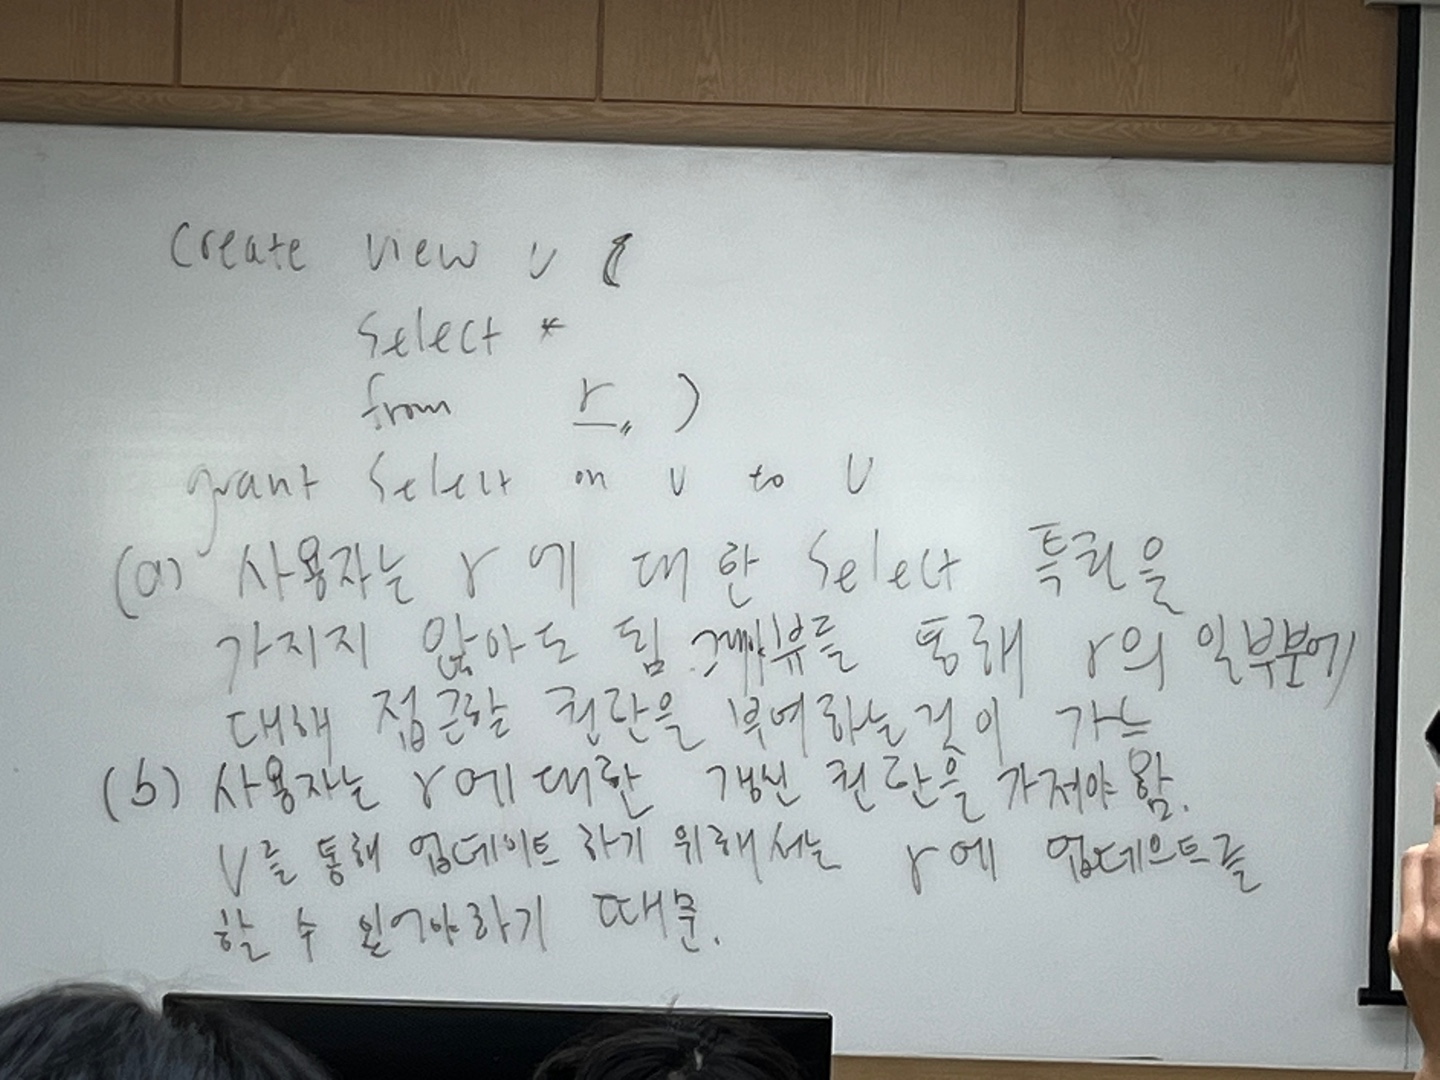 Create view v (
Select *
from r )
grant Select on v to U
(a) 사용자는 r에 대한 Select 특권을
가지지 않아도 됨. 그래야 뷰를 통해 r의 일부분에
대해 접근할 권한을 부여하는 것이 가능
(b) 사용자는 r에 대한 갱신 권한을 가져야 함.
V를 통해 업데이트 하기 위해서는 r에 업데이트를
할 수 있어야 하기 때문.